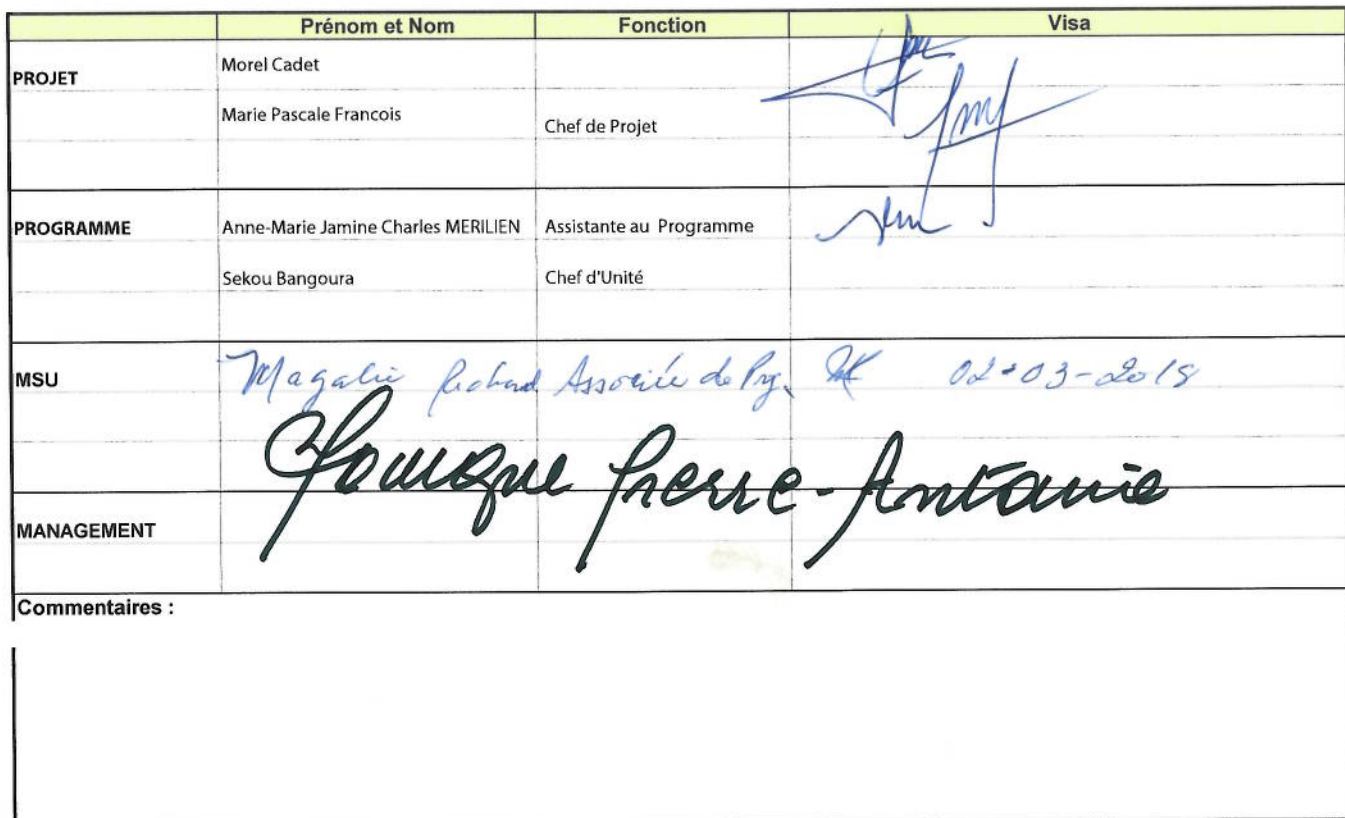 Prénom et Nom Fonction Visa
PROJET Morel Cadet
Marie Pascale Francois Chef de Projet
PROGRAMME Anne-Marie Jamine Charles MERILIEN Assistante au Programme
Sekou Bangoura Chef d'Unité
MSU Magalie Associée de Prg. 02-03-2018
Pierre-Antoine
MANAGEMENT
Commentaires :